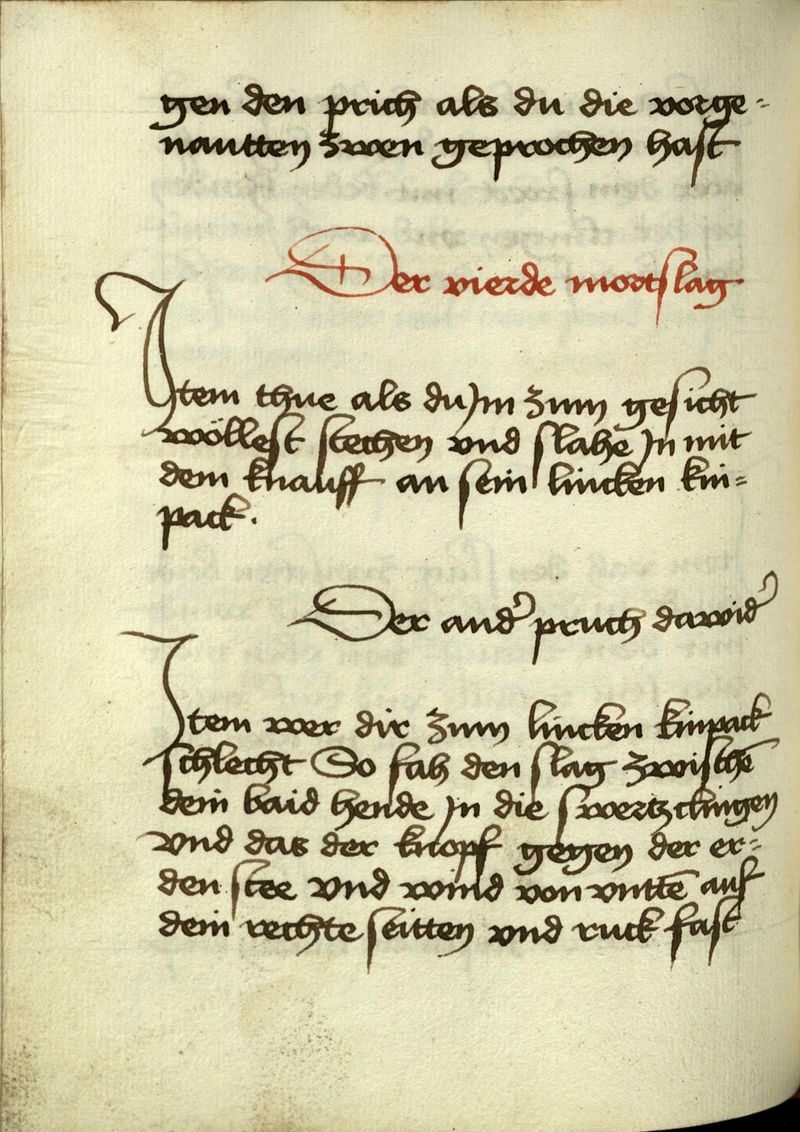 gen den prich als du die vorge-
nantten zwen geprochen hast
Der vierde mortslag
Item thue als du Jm zum gesicht
wöllest stechen vnd slahe Jn mit
dem knauff an sein lincken kin-
pack.
Der and̉ pruch dawid̉
Item wer dir zum lincken kinpack
schlecht So fah den slag zwischē
dein baid hende Jn die swertzclingen
vnd das der knopf gegen der er-
den stee vnd wind von vnttē auf
dein rechte seitten vnd ruck fast